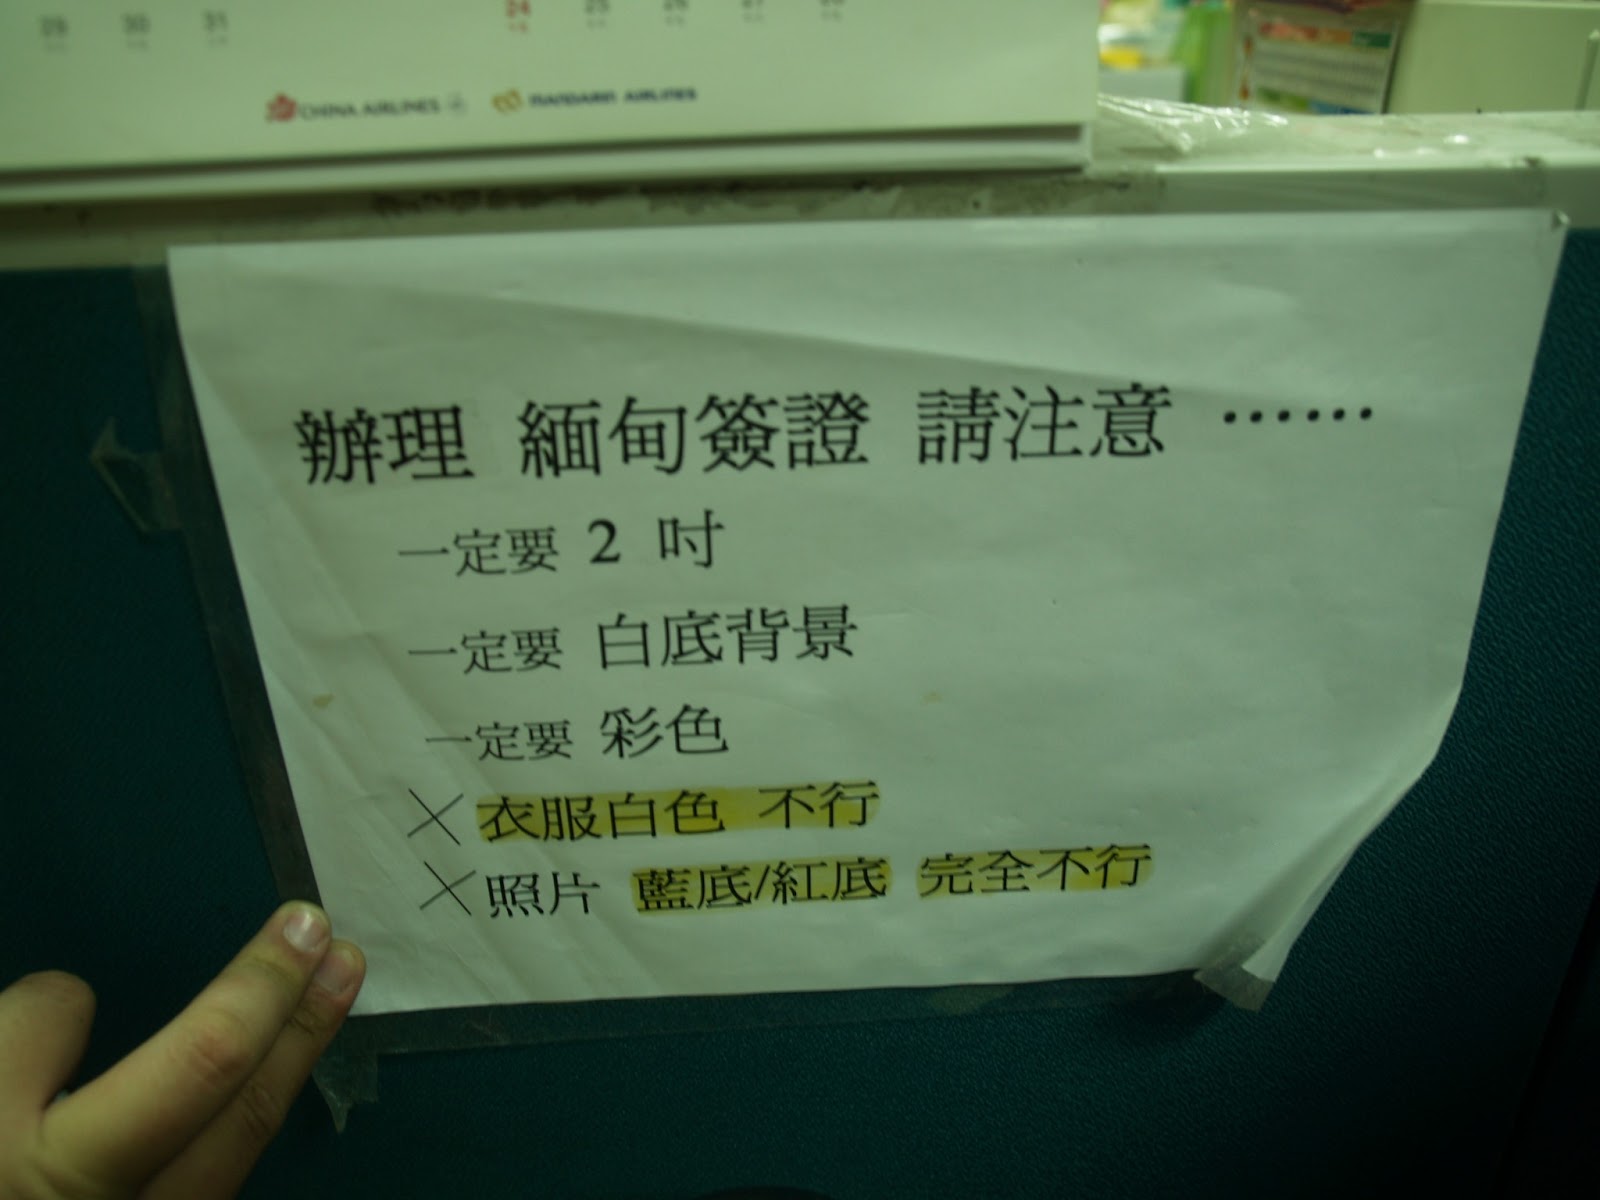 29 30 31 24 25 26 27
CHINA AIRLINES MANDARIN AIRLINES
辦理 緬甸簽證 請注意 ……
一定要 2 吋
一定要 白底背景
一定要 彩色
╳ 衣服白色 不行
╳ 照片 藍底/紅底 完全不行